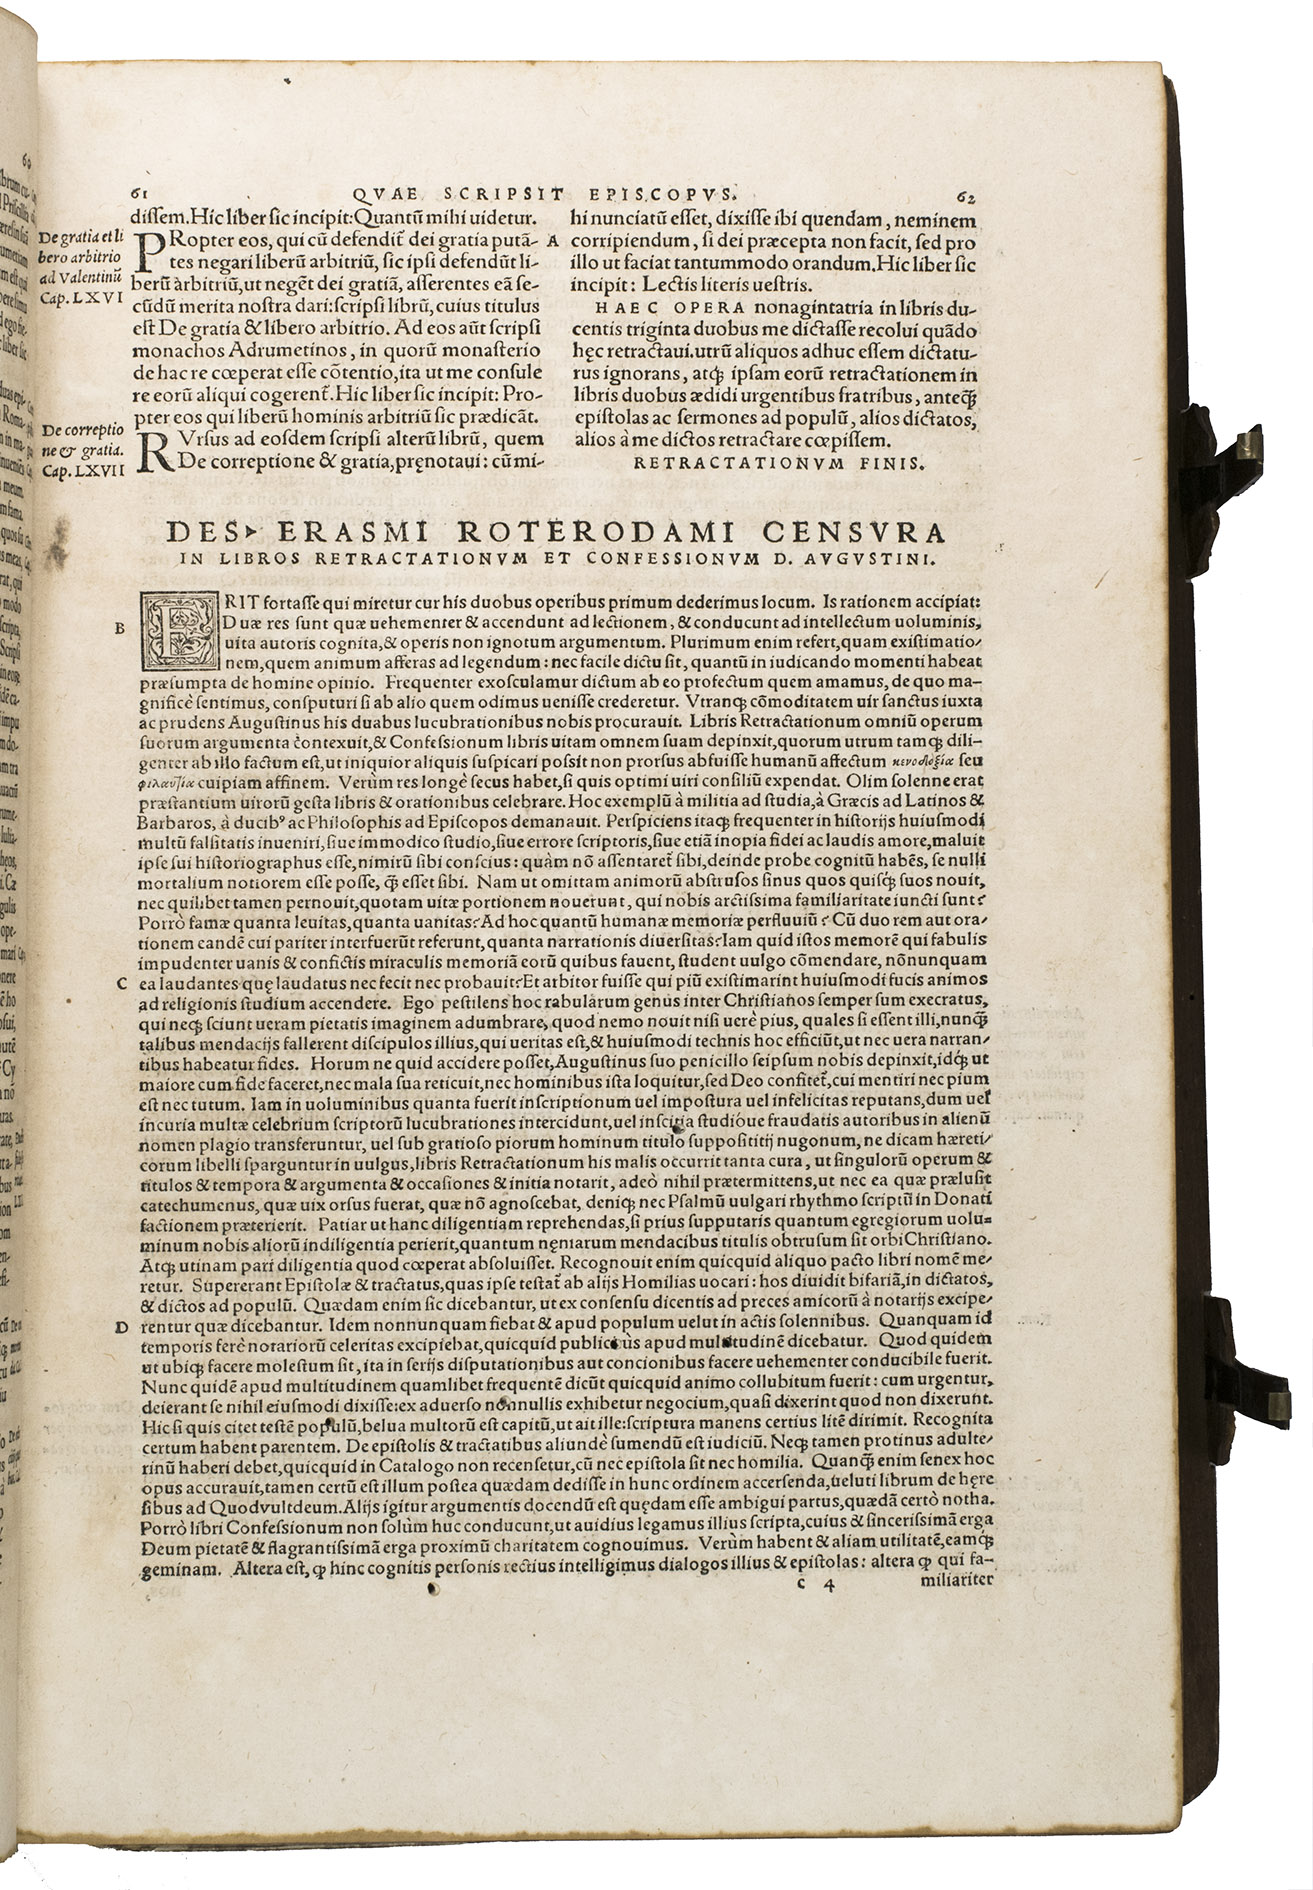 61 QVAE SCRIPSIT EPISCOPVS. 62
dissem. Hic liber sic incipit: Quantũ mihi uidetur.
De gratia et li
bero arbitrio
ad Valentinũ
Cap. LXVI
PRopter eos, qui cũ defendit᷑ dei gratia putã-
tes negari liberũ arbitriũ, sic ipsi defendũt li-
berũ àrbitriũ, ut neget̃ dei gratiã, asserentes eã se-
cũdũ merita nostra dari: scripsi librũ, cuius titulus
est De gratia & libero arbitrio. Ad eos aũt scripsi
monachos Adrumetinos, in quorũ monasterio
de hac re cœperat esse cõtentio, ita ut me consule
re eorũ aliqui cogerent᷑. Hic liber sic incipit: Pro-
pter eos qui liberũ hominis arbitriũ sic prædicãt.
De correptio
ne & gratia.
Cap. LXVII
RVrsus ad eosdem scripsi alterũ librũ, quem
De correptione & gratia, pręnotaui: cũ mi-
hi nunciatũ esset, dixisse ibi quendam, neminem
A corripiendum, si dei præcepta non facit, sed pro
illo ut faciat tantummodo orandum. Hic liber sic
incipit: Lectis literis uestris.
HAEC OPERA nonagintatria in libris du-
centis triginta duobus me dictasse recolui quãdo
hęc retractaui. utrũ aliquos adhuc essem dictatu-
rus ignorans, atq; ipsam eorũ retractationem in
libris duobus ædidi urgentibus fratribus, anteq̃
epistolas ac sermones ad populũ, alios dictatos,
alios à me dictos retractare cœpissem.
RETRACTATIONVM FINIS.
DES. ERASMI ROTERODAMI CENSVRA
IN LIBROS RETRACTATIONVM ET CONFESSIONVM D. AVGVSTINI.
ERIT fortasse qui miretur cur his duobus operibus primum dederimus locum. Is rationem accipiat:
B Duæ res sunt quæ uehementer & accendunt ad lectionem, & conducunt ad intellectum uoluminis,
uita autoris cognita, & operis non ignotum argumentum. Plurimum enim refert, quam existimatio-
nem, quem animum afferas ad legendum: nec facile dictu sit, quantũ in iudicando momenti habeat
præsumpta de homine opinio. Frequenter exosculamur dictum ab eo profectum quem amamus, de quo ma-
gnificè sentimus, consputuri si ab alio quem odimus uenisse crederetur. Vtranq; cõmoditatem uir sanctus iuxta
ac prudens Augustinus his duabus lucubrationibus nobis procurauit. Libris Retractationum omniũ operum
suorum argumenta contexuit, & Confessionum libris uitam omnem suam depinxit, quorum utrum tamq; dili-
genter ab illo factum est, ut iniquior aliquis suspicari possit non prorsus abfuisse humanũ affectum κενοδοξία seu
φιλαυτία cuipiam affinem. Verùm res longè secus habet, si quis optimi uiri consiliũ expendat. Olim solenne erat
præstantium uirorũ gesta libris & orationibus celebrare. Hoc exemplũ à militia ad studia, à Græcis ad Latinos &
Barbaros, à ducib⁹ ac Philosophis ad Episcopos demanauit. Perspiciens itaq; frequenter in historijs huiusmodi
multũ falsitatis inueniri, siue immodico studio, siue errore scriptoris, siue etiã inopia fidei ac laudis amore, maluit
ipse sui historiographus esse, nimirũ sibi conscius: quàm nõ assentaret᷑ sibi, deinde probe cognitũ habẽs, se nulli
mortalium notiorem esse posse, q̃ esset sibi. Nam ut omittam animorũ abstrusos sinus quos quisq; suos nouit,
nec quilibet tamen pernouit, quotam uitæ portionem nouerunt, qui nobis arctissima familiaritate iuncti sunt?
Porrò famæ quanta leuitas, quanta uanitas? Ad hoc quantũ humanæ memoriæ perfluuiũ? Cũ duo rem aut ora-
tionem candẽ cui pariter interfuerũt referunt, quanta narrationis diuersitas? Iam quid istos memorẽ qui fabulis
impudenter uanis & confictis miraculis memoriã eorũ quibus fauent, student uulgo cõmendare, nõnunquam
C ea laudantes quę laudatus nec fecit nec probauit? Et arbitor fuisse qui piũ existimarint huiusmodi fucis animos
ad religionis studium accendere. Ego pestilens hoc rabularum genus inter Christianos semper sum execratus,
qui neq; sciunt ueram pietatis imaginem adumbrare, quod nemo nouit nisi uerè pius, quales si essent illi, nunq̃
talibus mendacijs fallerent discipulos illius, qui ueritas est, & huiusmodi technis hoc efficiũt, ut nec uera narran-
tibus habeatur fides. Horum ne quid accidere posset, Augustinus suo penicillo seipsum nobis depinxit, idq; ut
maiore cum fide faceret, nec mala sua reticuit, nec hominibus ista loquitur, sed Deo confitet᷑, cui mentiri nec pium
est nec tutum. Iam in uoluminibus quanta fuerit inscriptionum uel impostura uel infelicitas reputans, dum uel
incuria multæ celebrium scriptorũ lucubrationes intercidunt, uel inscitia studióue fraudatis autoribus in alienũ
nomen plagio transferuntur, uel sub gratioso piorum hominum titulo supposititij nugonum, ne dicam hæreti-
corum libelli sparguntur in uulgus, libris Retractationum his malis occurrit tanta cura, ut singulorũ operum &
titulos & tempora & argumenta & occasiones & initia notarit, adeò nihil prætermittens, ut nec ea quæ prælusit
catechumenus, quæ uix orsus fuerat, quæ nõ agnoscebat, deniq; nec Psalmũ uulgari rhythmo scriptũ in Donati
factionem præterierit. Patiar ut hanc diligentiam reprehendas, si prius supputaris quantum egregiorum uolu-
minum nobis aliorũ indiligentia perierit, quantum nęniarum mendacibus titulis obtrusum sit orbi Christiano.
Atq; utinam pari diligentia quod cœperat absoluisset. Recognouit enim quicquid aliquo pacto libri nomẽ me-
retur. Supererant Epistolæ & tractatus, quas ipse testat᷑ ab alijs Homilias uocari: hos diuidit bifariã, in dictatos,
& dictos ad populũ. Quædam enim sic dicebantur, ut ex consensu dicentis ad preces amicorũ à notarijs excipe-
D rentur quæ dicebantur. Idem nonnunquam fiebat & apud populum uelut in actis solennibus. Quanquam id
temporis ferè notariorũ celeritas excipiebat, quicquid publicitùs apud multitudinẽ dicebatur. Quod quidem
ut ubiq; facere molestum sit, ita in serijs disputationibus aut concionibus facere uehementer conducibile fuerit.
Nunc quidẽ apud multitudinem quamlibet frequentẽ dicũt quicquid animo collubitum fuerit: cum urgentur,
deierant se nihil eiusmodi dixisse: ex aduerso nonnullis exhibetur negocium, quasi dixerint quod non dixerunt.
Hic si quis citet testẽ populũ, belua multorũ est capitũ, ut ait ille: scriptura manens certius litẽ dirimit. Recognita
certum habent parentem. De epistolis & tractatibus aliundè sumendũ est iudiciũ. Neq; tamen protinus adulte-
rinũ haberi debet, quicquid in Catalogo non recensetur, cũ nec epistola sit nec homilia. Quanq̃ enim senex hoc
opus accurauit, tamen certũ est illum postea quædam dedisse in hunc ordinem accersenda, ueluti librum de hęre
sibus ad Quodvultdeum. Alijs igitur argumentis docendũ est quędam esse ambigui partus, quædã certò notha.
Porrò libri Confessionum non solùm huc conducunt, ut auidius legamus illius scripta, cuius & sincerissimã erga
Deum pietatẽ & flagrantissimã erga proximũ charitatem cognouimus. Verùm habent & aliam utilitatẽ, eamq;
geminam. Altera est, ꝙ hinc cognitis personis rectius intelligimus dialogos illius & epistolas: altera ꝙ qui fa-
c 4 miliariter